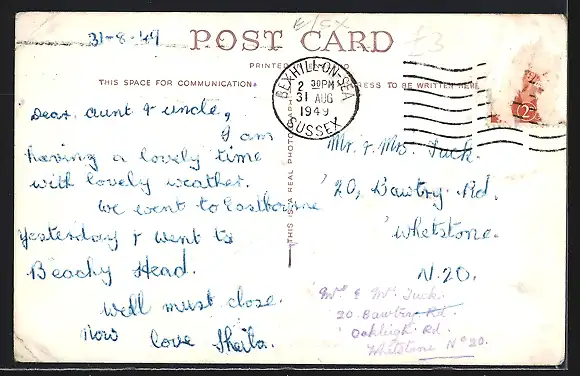 31-8-49
E/SX
£3
POST CARD
PRINTED
THIS SPACE FOR COMMUNICATION
ADDRESS TO BE WRITTEN HERE
BEXHILL-ON-SEA
2 30PM
31 AUG
1949
SUSSEX
THIS IS A REAL PHOTOGRAPH
Dear Aunt & uncle,
I am
having a lovely time
with lovely weather.
We went to Eastbourne
yesterday & went to
Beachy Head.
Well must close.
now love Sheila.
Mr. & Mrs. Tuck.
20, Bawtry Rd.
Whetstone.
N.20.
Mr. & Mrs. Tuck.
20 Bawtry Rd.
Oakleigh Rd.
Whetstone No 20.